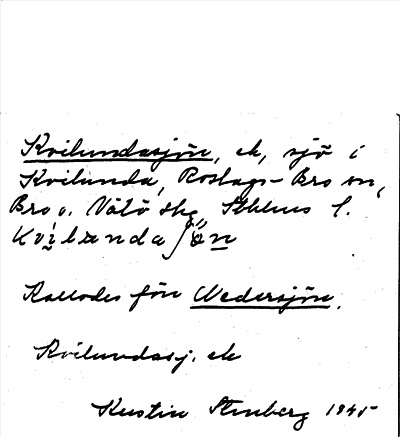 Kvilundasjön, ek, sjö i
Kvilunda, Roslags-Bro sn,
Bro o. Vätö skg, Sthlms l.
Kvi̇̀lɯndaʃö̀n
Kallades förr Nedersjön.
Kvilundasj. ek
Kerstin Stenberg 1945